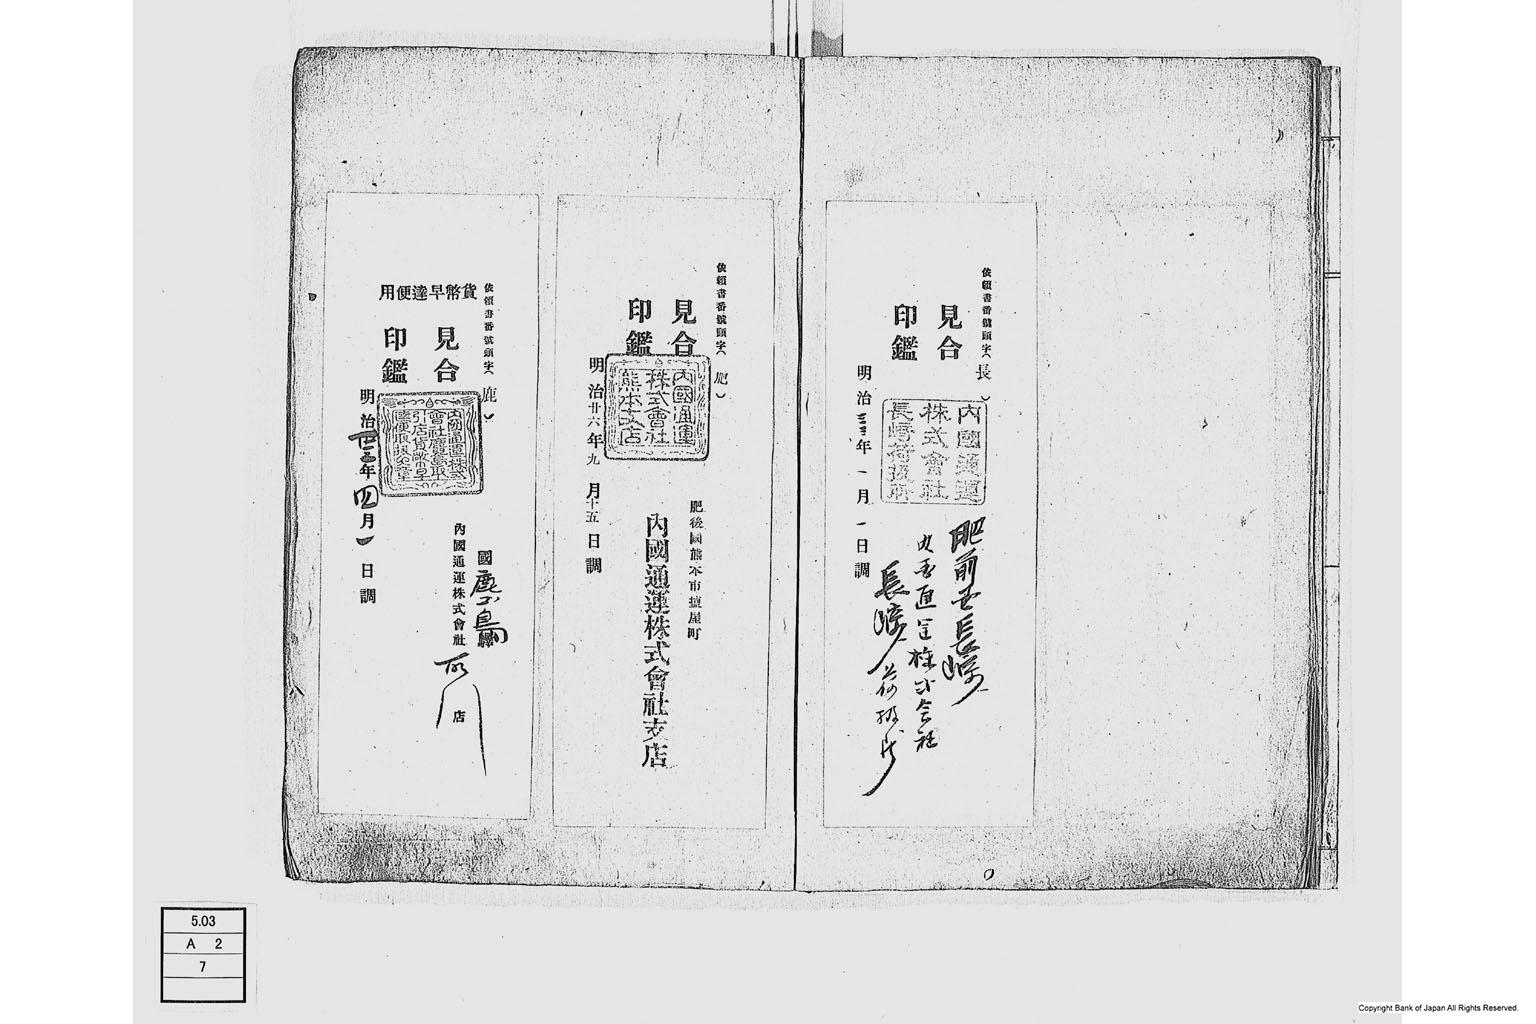 依頼書番號頭字（長）
見合
印鑑
明治三三年一月一日調
內國通運
株式會社
長崎荷扱所
肥前国長崎
内国通運株式会社
長崎荷扱所
依頼書番號頭字（肥）
見合
印鑑
明治廿六年九月十五日調
內國通運
株式會社
熊本支店
肥後國熊本市壇屋町
內國通運株式會社支店
依頼書番號頭字（鹿）
貨幣早達便用
見合
印鑑
明治年四月一日調
內國通運株式
會社鹿兒島取
引店貨幣早
國鹿児島
內國通運株式會社
店
5.03
A 2
7
Copyright Bank of Japan All Rights Reserved.